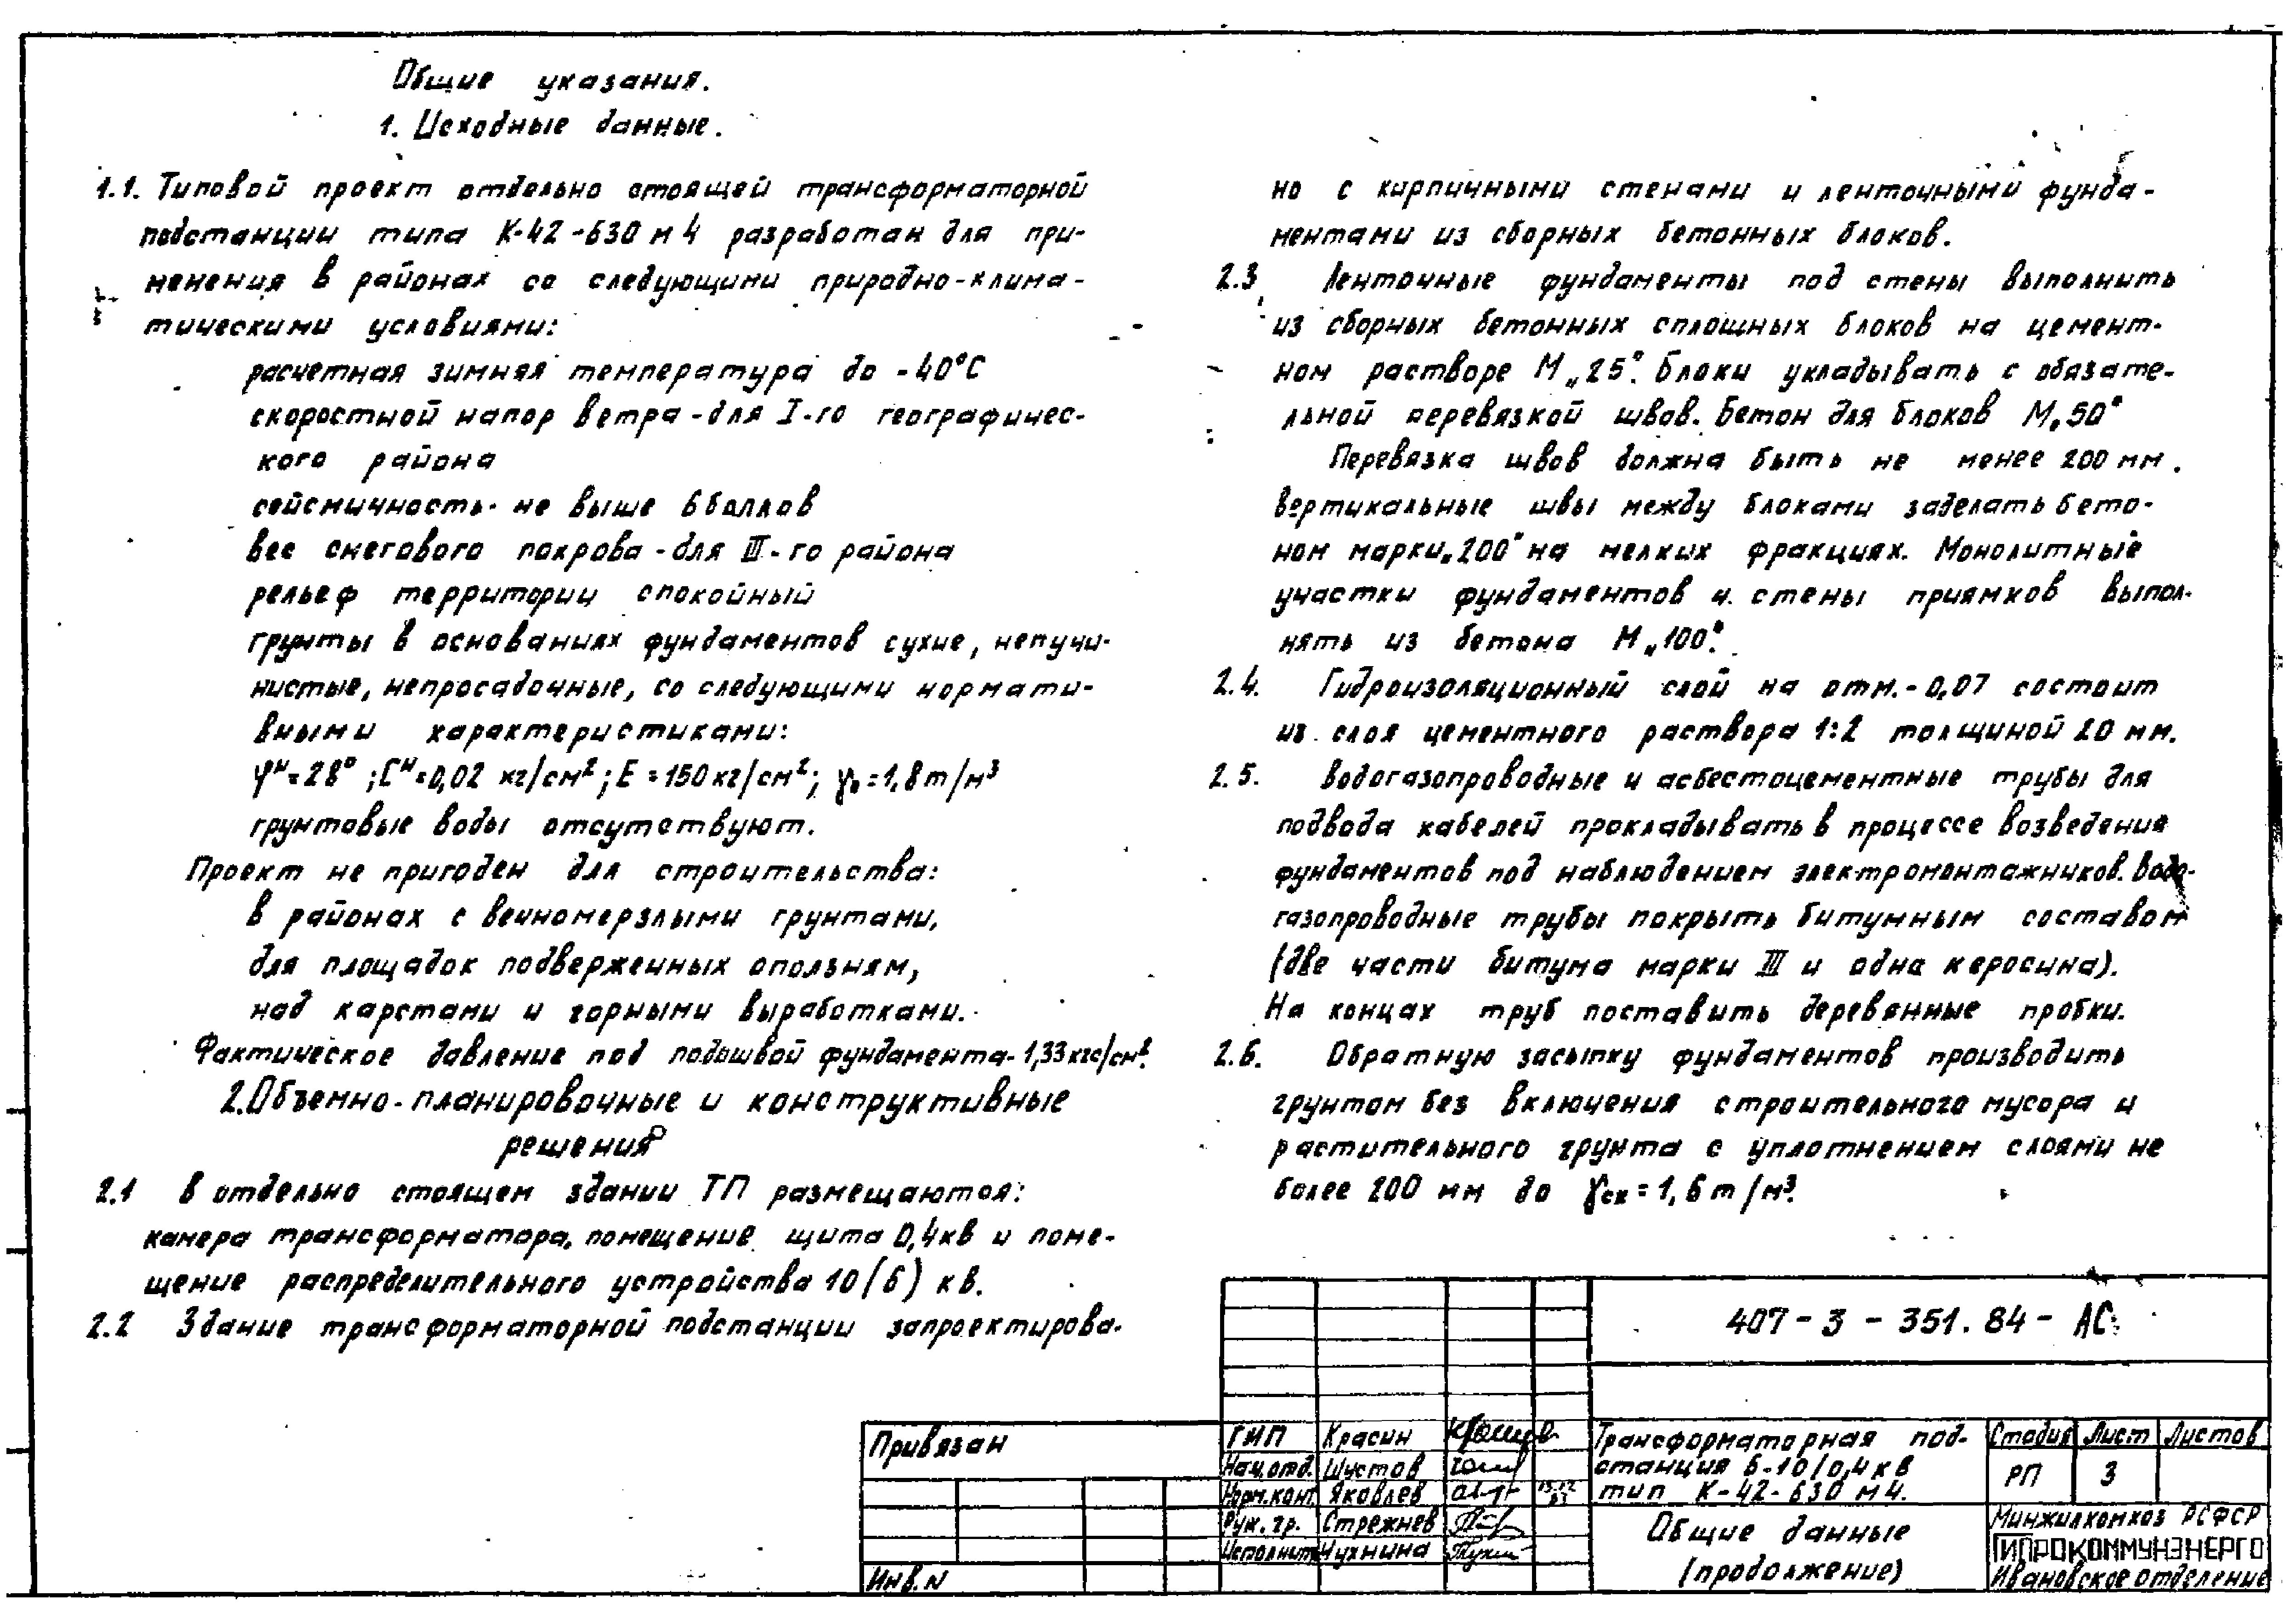 Общие указания.
1. Исходные данные.
1.1. Типовой проект отдельно стоящей трансформаторной
подстанции типа К-42-630 м 4 разработан для при-
менения в районах со следующими природно-клима-
тическими условиями:
расчетная зимняя температура до -40°С
скоростной напор ветра - для I-го географичес-
кого района
сейсмичность - не выше 6 баллов
вес снегового покрова - для III-го района
рельеф территории спокойный
грунты в основаниях фундаментов сухие, непучи-
нистые, непросадочные, со следующими нормати-
вными характеристиками:
φн=28°; Cн=0,02 кг/см²; E=150 кг/см²; γо=1,8 т/м³
грунтовые воды отсутствуют.
Проект не пригоден для строительства:
в районах с вечномерзлыми грунтами,
для площадок подверженных оползням,
над карстами и горными выработками.
Фактическое давление под подошвой фундамента - 1,33 кгс/см².
2. Объемно-планировочные и конструктивные
решения
2.1 В отдельно стоящем здании ТП размещаются:
камера трансформатора, помещение щита 0,4 кв и поме-
щение распределительного устройства 10(6) кв.
2.2 Здание трансформаторной подстанции запроектирова-
но с кирпичными стенами и ленточными фунда-
ментами из сборных бетонных блоков.
2.3 Ленточные фундаменты под стены выполнить
из сборных бетонных сплошных блоков на цемент-
ном растворе М „25". Блоки укладывать с обязате-
льной перевязкой швов. Бетон для блоков М„50"
Перевязка швов должна быть не менее 200 мм.
Вертикальные швы между блоками заделать бето-
ном марки „200" на мелких фракциях. Монолитные
участки фундаментов и стены приямков выпол-
нять из бетона М „100".
2.4. Гидроизоляционный слой на отм. - 0,07 состоит
из слоя цементного раствора 1:2 толщиной 20 мм.
2.5. Водогазопроводные и асбестоцементные трубы для
подвода кабелей прокладывать в процессе возведения
фундаментов под наблюдением электромонтажников. Водо-
газопроводные трубы покрыть битумным составом
(две части битума марки III и одна керосина).
На концах труб поставить деревянные пробки.
2.6. Обратную засыпку фундаментов производить
грунтом без включения строительного мусора и
растительного грунта с уплотнением слоями не
более 200 мм до γск=1,6 т/м³.
407-3-351.84-АС
Привязан
Инв.N
ГИП Красин
Нач.отд. Шустов
Норм.конт. Яковлев
Рук.гр. Стрежнев
Исполнит. Чухнина
Трансформаторная под-
станция 6-10/0,4 кв
тип К-42-630 м4.
Стадия Лист Листов
РП 3
Общие данные
(продолжение)
Минжилкомхоз РСФСР
ГИПРОКОММУНЭНЕРГО
Ивановское отделение